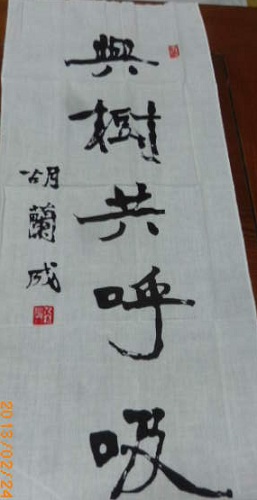 與樹共呼吸
胡蘭成
2013/02/24